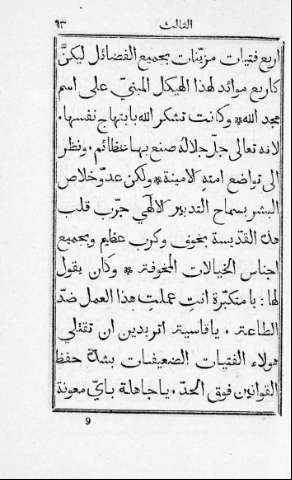 الثالث ٩٣
اربع فتيات مزيّنات بجميع الفضائل ليكنَّ
كاربع موائد لهذا الهيكل المبنيّ على اسم
مجد الله * وكانت تشكر الله بابتهاج نفسها.
لانه تعالى جلّ جلاله صنع بها عظائم. ونظر
الى تواضع امته لامينة * ولكن عدو خلاص
البشر بسماح التدبير لالهي جرّب قلب
هذه القديسة بخوف وكرب عظيم وبجميع
اجناس الخيالات المخوفة * وكان يقول
لها: يا متكبّرة انتِ عملتِ هذا العمل ضدّ
الطاعة. يا قاسية اتريدين ان تقتلي
هولاء الفتيات الضعيفات بشدّة حفظ
القوانين فوق الحدّ. يا جاهلة بايّ معونة
9